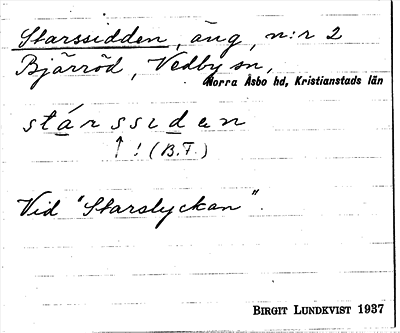 Starssidden, äng, n:r 2
Bjärröd, Vedby sn,
Norra Åsbo hd, Kristianstads län
stánssıden
↑ ! (B.T.)
Vid "Starslyckan".
BIRGIT LUNDKVIST 1937